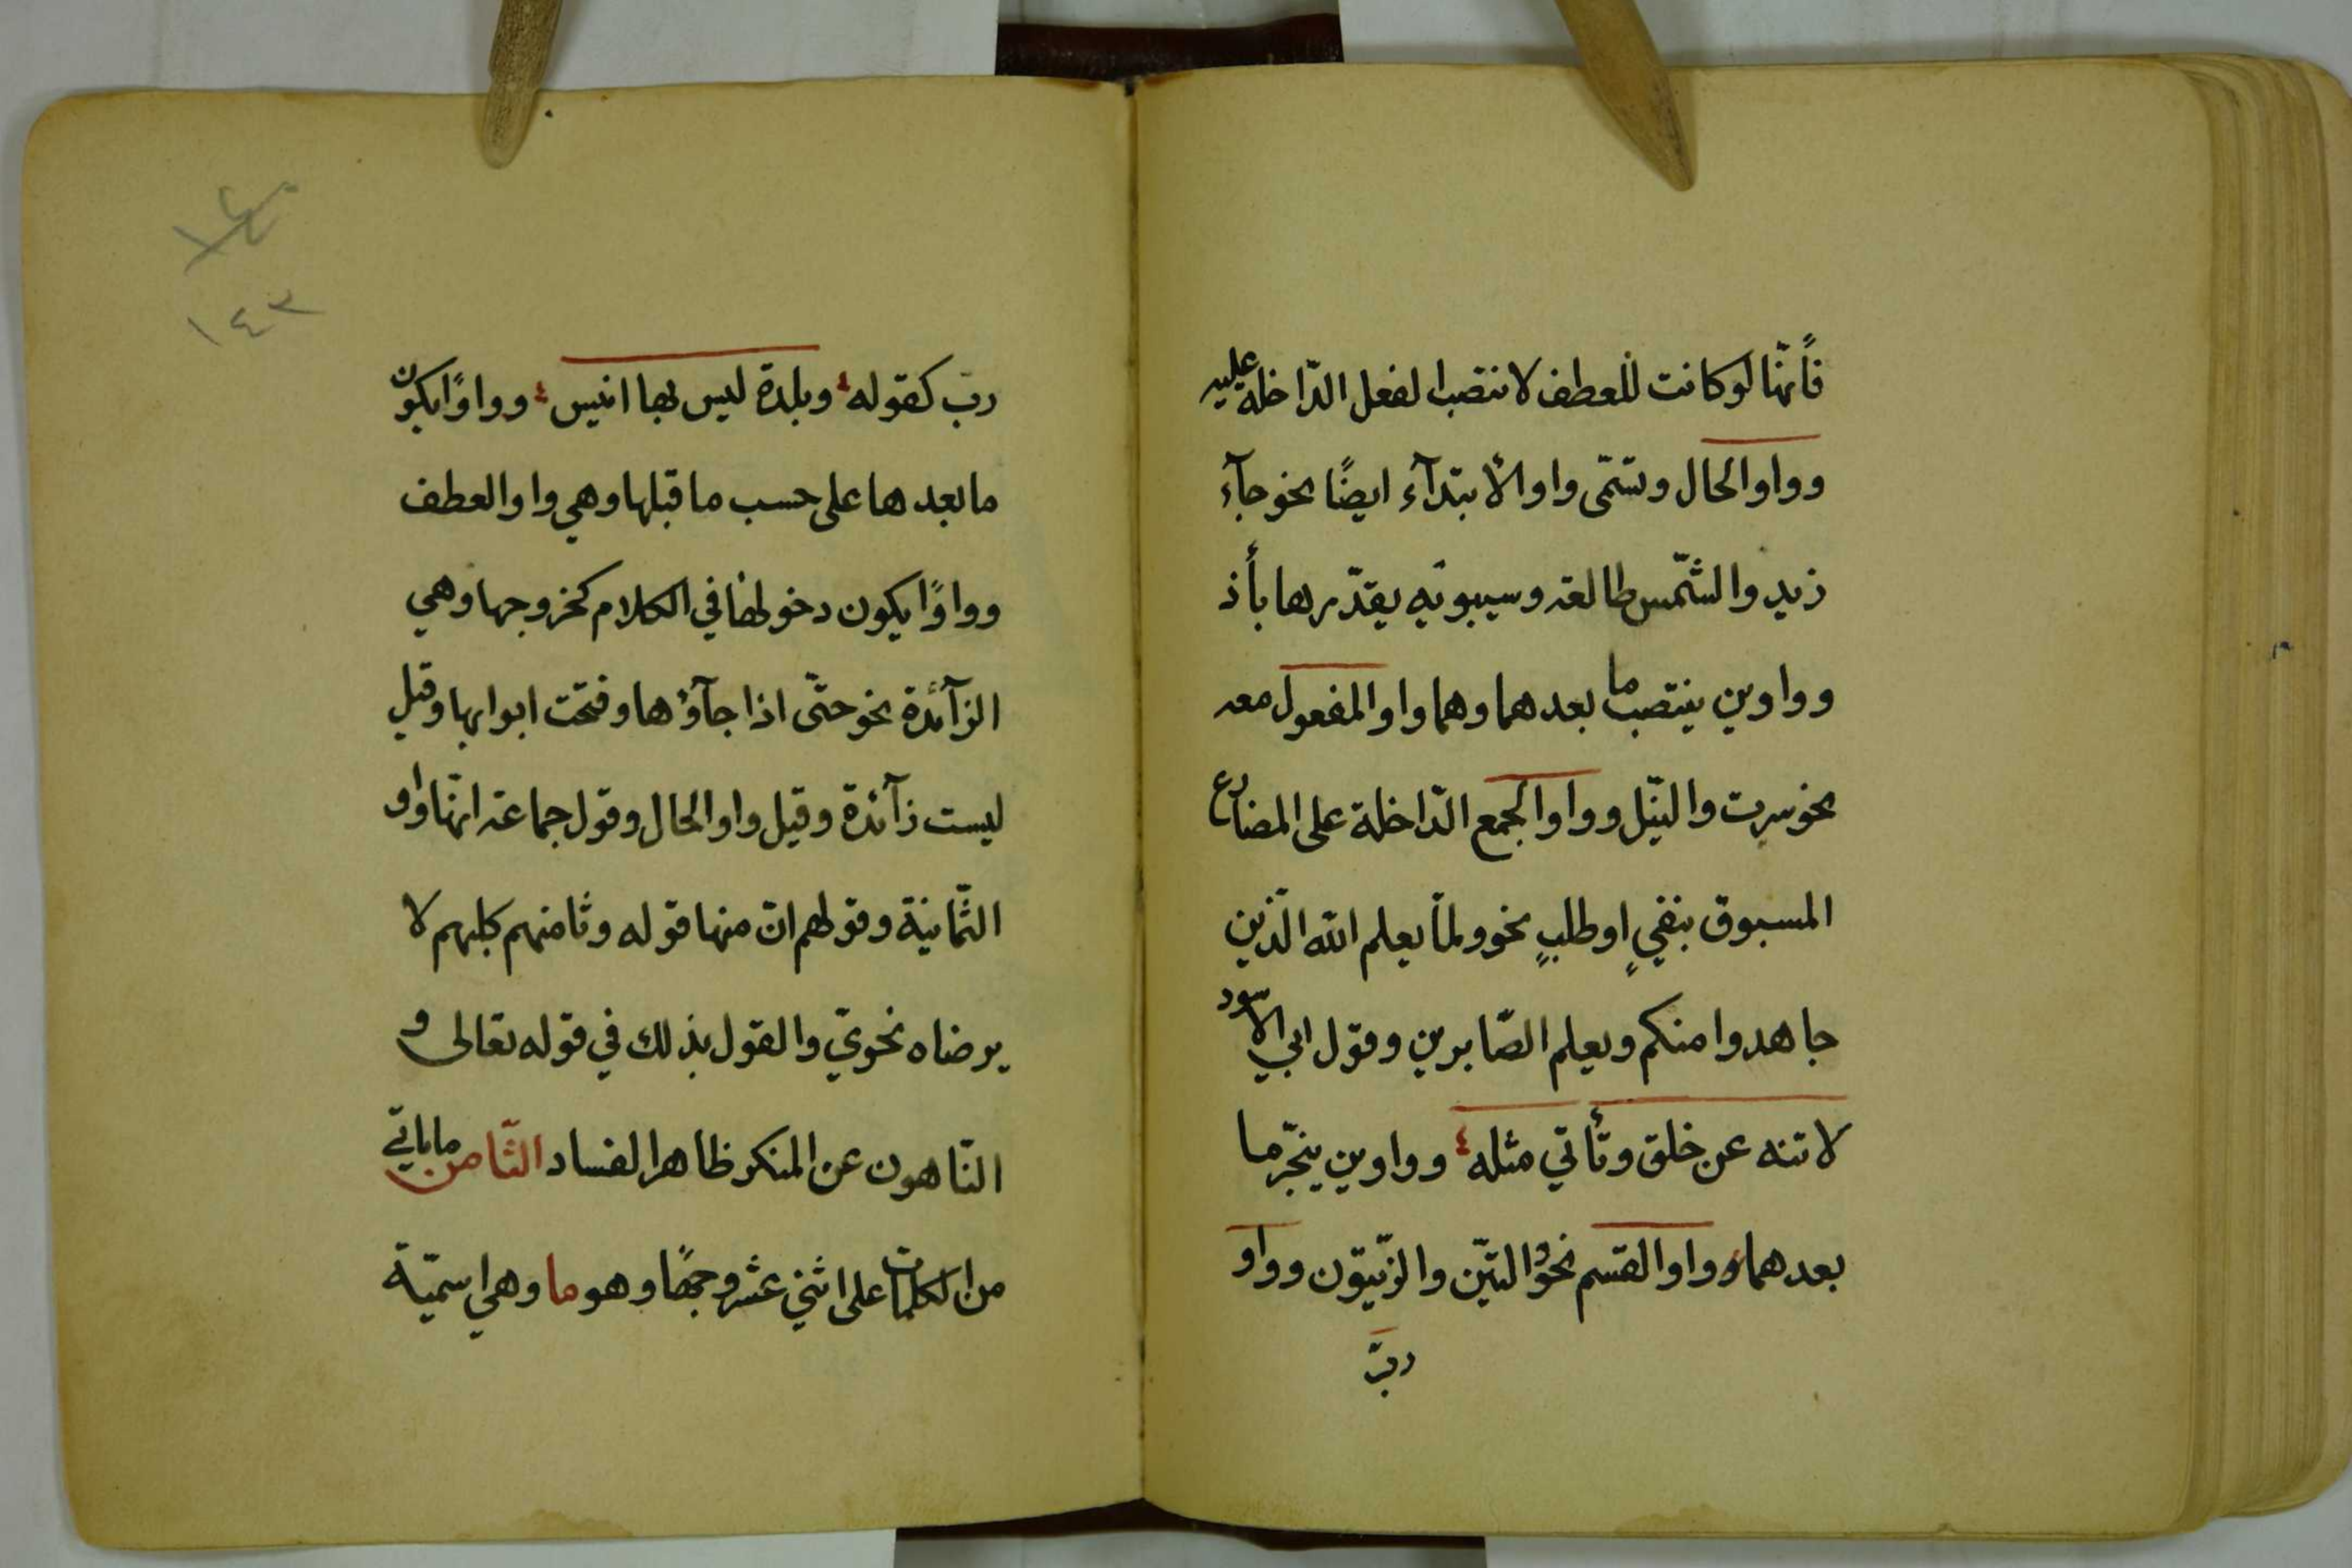 فأنّها لوكانت للعطف لانتصب الفعل الدّاخلة عليه
وواو الحال وتسّمى واو الأبتدآء ايضًا نحو جآء
زيد والشّمس طالعة وسيبويه يقدّرها بأذ
وواوين ينتصب ما بعدهما وهما واو المفعول معه
نحو سرت والنّيل وواو الجمع الدّاخلة على المضارع
المسبوق بنفيٍ او طلبٍ نحو ولمّا يعلم الله الّذين
جاهدوا منكم ويعلم الصّابرين وقول ابي الاسود
لا تنه عن خلق وتأتي مثله وواوين ينجّر ما
بعدهما وواو القسم نحو والتّين والزّيتون وواو
ربّ
١٤٣
ربّ كقوله وبلدة ليس بها انيس وواوًا يكون
ما بعدها على حسب ما قبلها وهي واو العطف
وواوًا يكون دخولها في الكلام كخروجها وهي
الزآئدة نحو حتّى اذا جآؤها وفتحت ابوابها وقيل
ليست زآئدة وقيل واو الحال وقول جماعة انّها واو
الثّمانية وقولهم انّ منها قوله وثامنهم كلبهم لا
يرضاه نحويّ والقول بذلك في قوله تعالى و
النّاهون عن المنكر ظاهر الفساد الثّامن ما ياتي
من الكلمات على اثني عشر وجهًا وهو ما وهي اسميّة